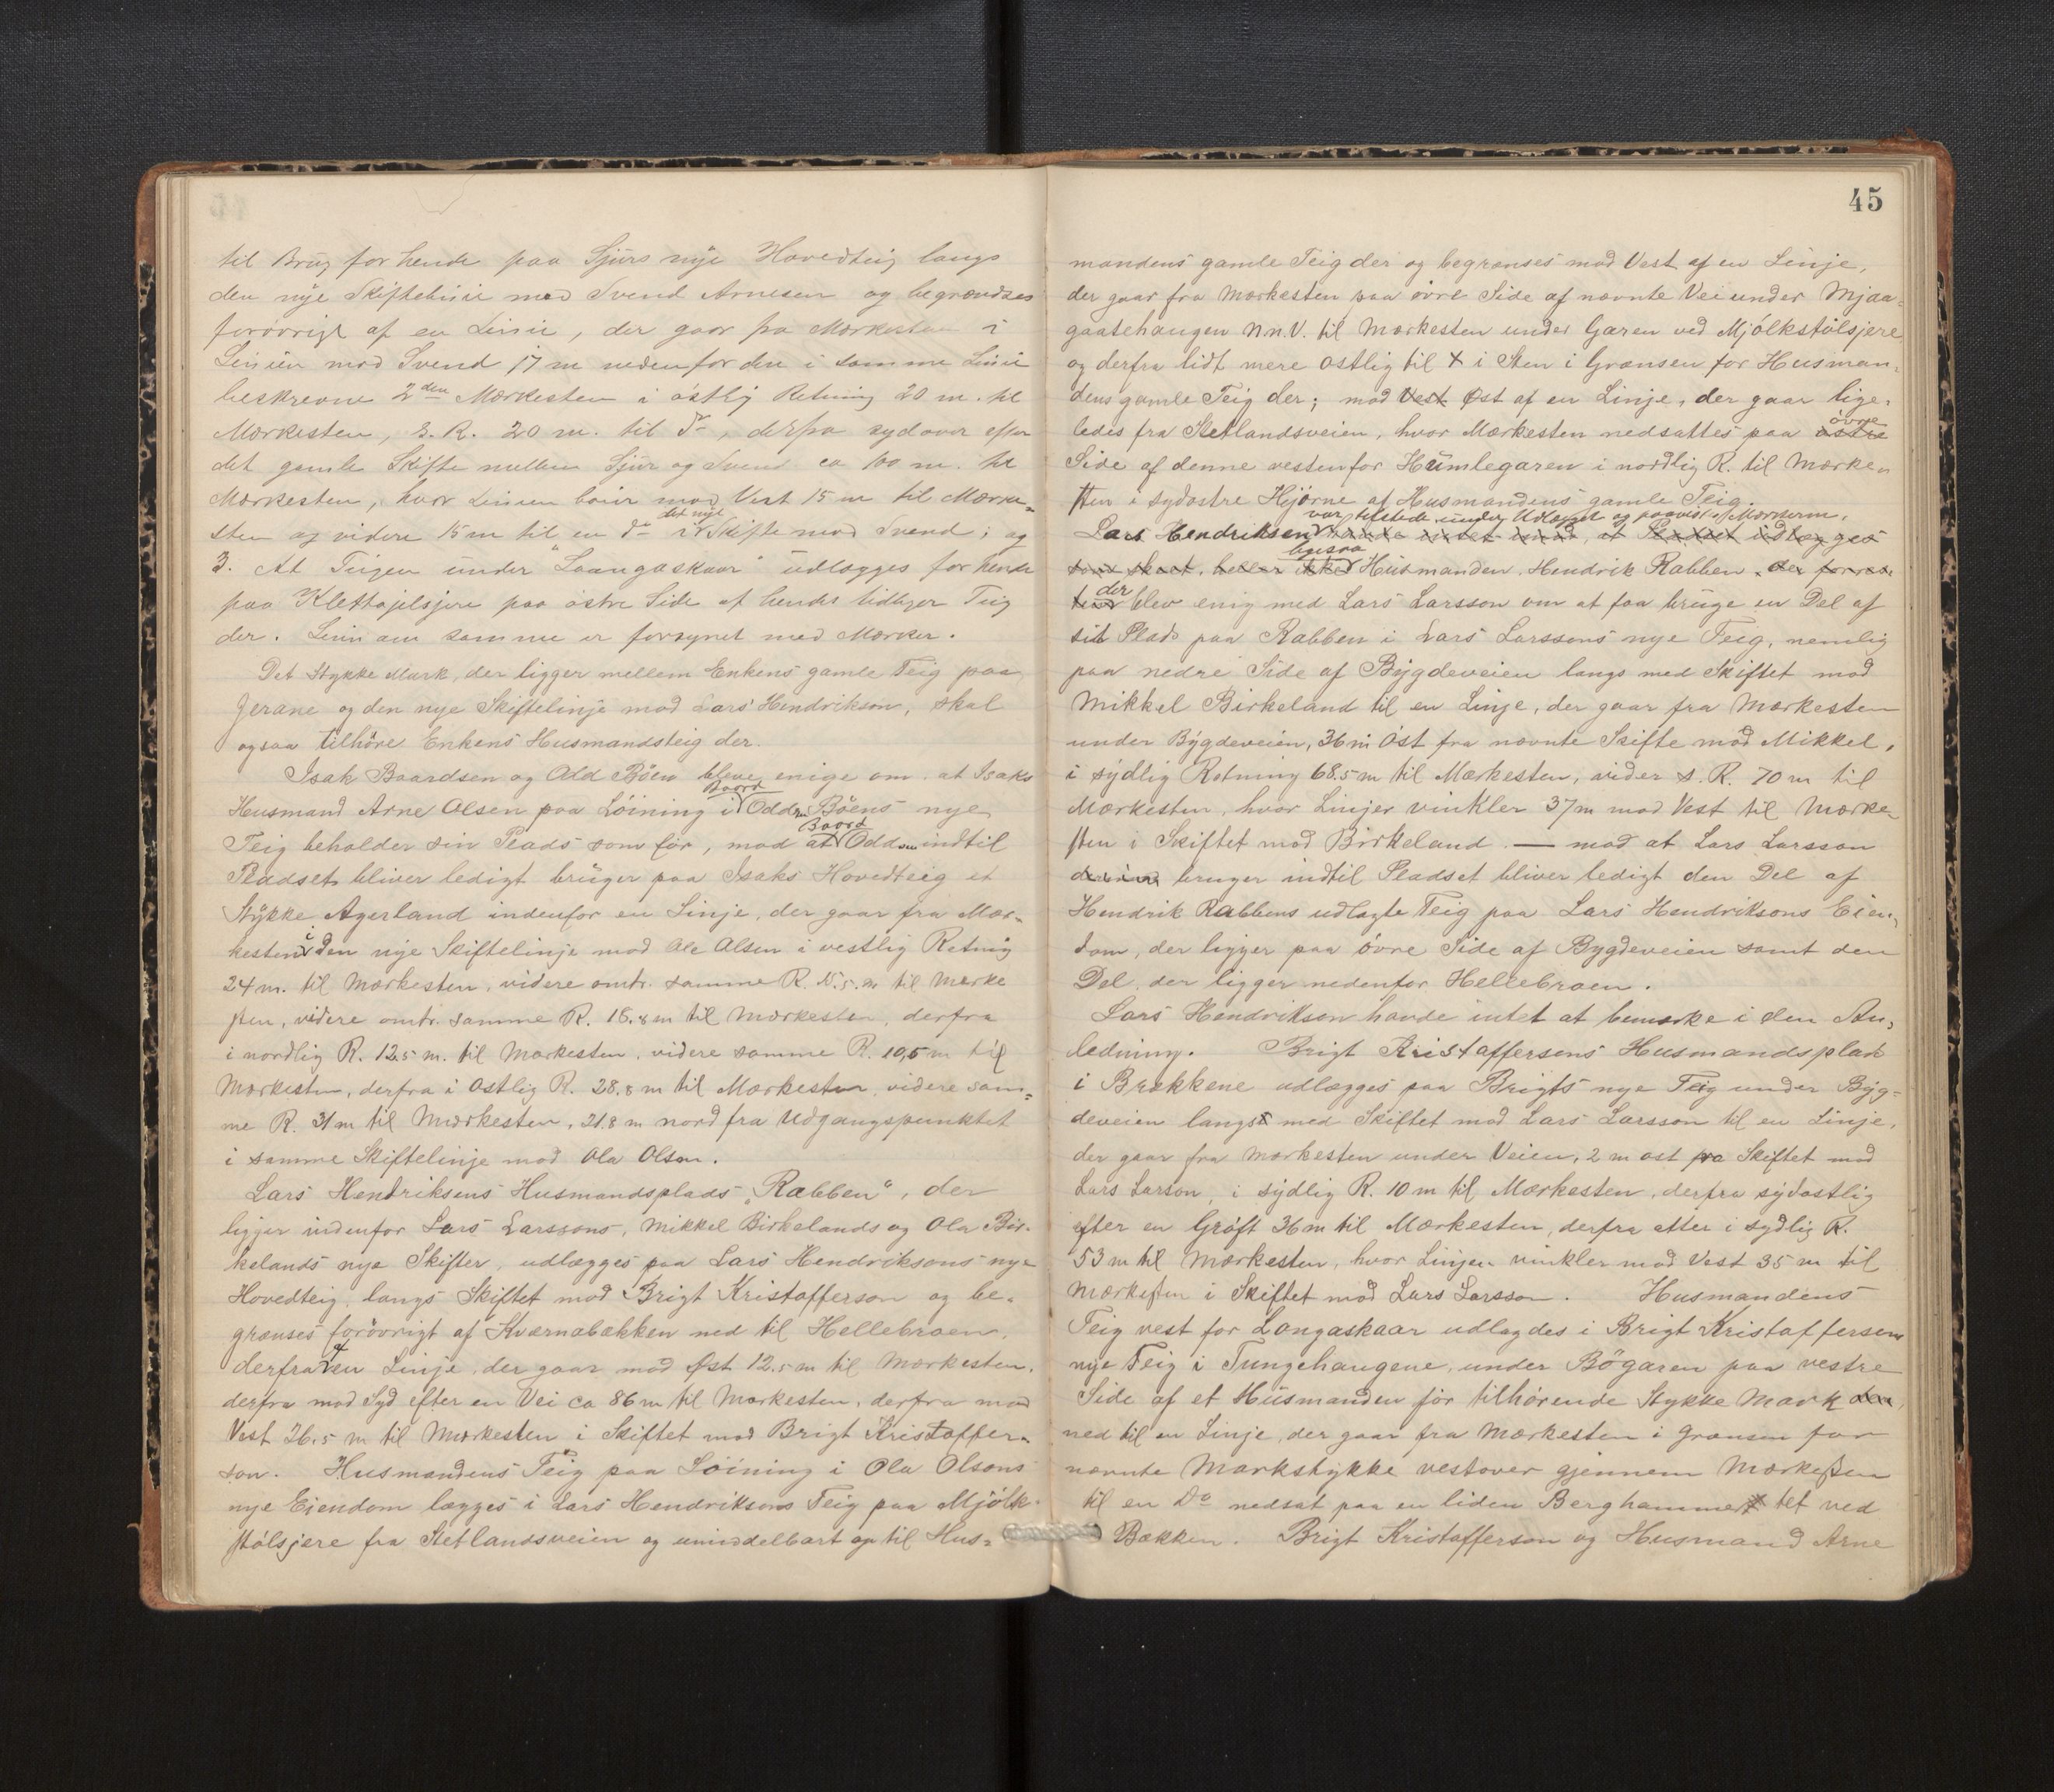 til Brug for hende paa Sjurs nye Hovedteig langs
den nye Skiftelinie med Svend Arnesen og begrændses
forøvrigt af en Linie, der gaar fra Mærkesten i
Linien mod Svend 17 m nedenfor den i samme Linie
beskrevne 2den Mærkesten i østlig Retning 20 m. til
Mærkesten, s. R. 20 m. til do, derfra sydover efter
det gamle Skifte mellem Sjur og Svend ca 100 m. til
Mærkesten, hvor Linien bøier mod Vest 15 m til Mærke-
sten og videre 15 m til en do i det nye Skifte mod Svend; og
3. At Teigen under "Laangaskaar" udlægges for hende
paa Klettajelsjere paa østre Side af hendes tidligere Teig
der. Linien om samme er forsynet med Mærker.
Det Stykke Mark, der ligger mellem Enkens gamle Teig paa
Jerane og den nye Skiftelinje mod Lars Hendrikson, skal
ogsaa tilhøre Enkens Husmandsteig der.
Isak Baardsen og Odd Bøen bleve enige om at Isaks
Husmand Arne Olsen paa Løining i Baard Oddsen Bøens nye
Teig beholder sin Plads som før, mod at Baard Oddsen indtil
Pladset bliver ledigt bruger paa Isaks Hovedteig et
Stykke Agerland indenfor en Linje, der gaar fra Mær-
kesten i den nye Skiftelinje mod Ole Olsen i vestlig Retning
24 m. til Mærkesten, videre omtr. samme R. 15.5 m til Mærke
sten, videre omtr. samme R. 16.8 m til Mærkesten, derfra
i nordlig R. 12.5 m. til Mærkesten, videre samme R. 10,5 m til
Mærkesten, derfra i østlig R. 28.8 m til Mærkesten, videre sam-
me R. 31 m til Mærkesten, 21.8 m nord fra Udgangspunktet
i samme Skiftelinje mod Ola Olsen.
Lars Hendriksens Husmandsplads "Rabben", der
ligger indenfor Lars Larssons, Mikkel Birkelands og Ola Bir-
kelands nye Skifter, udlægges paa Lars Hendriksons nye
Hovedteig langs Skiftet mod Brigt Kristofferson og be-
grænses forøvrigt af Kværnabækken ned til Hellebroen,
derfra af en Linje, der gaar mod Øst 12.5 m til Mærkesten,
derfra mod Syd efter en Vei ca 86 m til Mærkesten, derfra mod
Vest 26.5 m til Mærkesten i Skiftet mod Brigt Kristoffer-
son. Husmandens Teig paa Løining i Ola Olsons
nye Eiendom lægges i Lars Hendriksons Teig paa Mjølk-
stølsjere fra Stetlandsveien og umiddelbart op til Hus-
45
mandens gamle Teig der og begrænses mod Vest af en Linje,
der gaar fra Mærkesten paa øvre Side af nævnte Vei under Mjaa-
gaatehaugen N.n.V. til Mærkesten under Garen ved Mjølkstølsjere
og derfra lidt mere østlig til X i Sten i Grænsen for Husman-
dens gamle Teig der; mod Vest Øst af en Linje, der gaar lige-
ledes fra Stetlandsveien, hvor Mærkesten nedsattes paa østre øvre
Side af denne vestenfor Humlegaren i nordlig R. til Mærke-
sten i sydøstre Hjørne af Husmandens gamle Teig.
Lars Hendriksen var tilstede under Udlægget og paavist Mærkerne, havde intet imod, at Pladset udlægges
som skeet, heller ikke ligesaa Husmanden Hendrik Rabben, der forres-
ten der blev enig med Lars Larsson om at faa bruge en Del af
sit Plads paa Rabben i Lars Larssons nye Teig, nemlig
paa nedre Side af Bygdeveien langs med Skiftet mod
Mikkel Birkeland til en Linje, der gaar fra Mærkesten
under Bygdeveien, 36 m Øst fra nævnte Skifte mod Mikkel,
i sydlig Retning 68.5 m til Mærkesten, vider s. R. 70 m til
Mærkesten, hvor Linjer vinkler 37 m mod Vest til Mærke
sten i Skiftet mod Birkeland. — mod at Lars Larsson
bruger indtil Pladset bliver ledigt den Del af
Hendrik Rabbens udlagte Teig paa Lars Hendriksons Eien-
dom, der ligger paa øvre Side af Bygdeveien samt den
Del, der ligger nedenfor Hellebroen.
Lars Hendrikson havde intet at bemærke i den An-
ledning. Brigt Kristoffersens Husmandsplads
i Brækkene udlægges paa Brigts nye Teig under Byg-
deveien langs med Skiftet mod Lars Larsson til en Linje,
der gaar fra Mærkesten under Veien, 2 m øst fra Skiftet mod
Lars Larson, i sydlig R. 10 m til Mærkesten, derfra sydøstlig
efter en Grøft 36 m til Mærkesten, derfra atter i sydlig R.
53 m til Mærkesten, hvor Linjen vinkler mod Vest 35 m til
Mærkesten i Skiftet mod Lars Larsson. Husmandens
Teig vest for Longaskaar udlagdes i Brigt Kristoffersens
nye Teig i Tungehaugene, under Bøgaren paa vestre
Side af et Husmanden før tilhørende Stykke Mark den
ned til en Linje, der gaar fra Mærkesten i Grænsen for
nævnte Markstykke vestover gjennem Mærkesten
til en Do nedsat paa en liden Berghammer tet ved
Bækken. Brigt Kristofferson og Husmand Arne